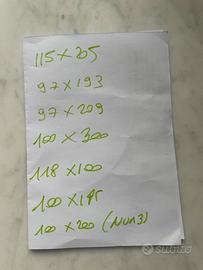 115 X 205
97 X 193
97 X 209
100 X 300
118 X 100
100 X 195
100 X 200 (NUM3)
subito